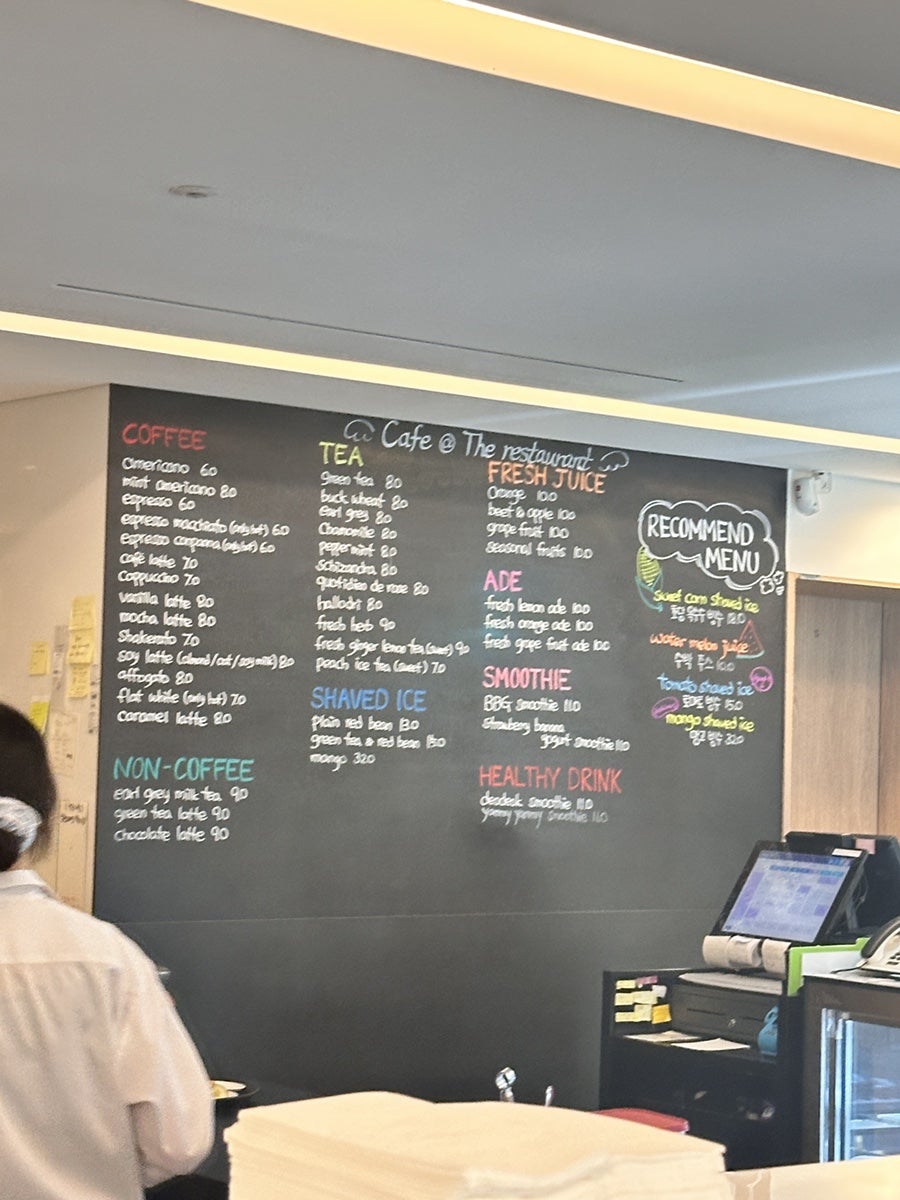 Cafe @ The restaurant
COFFEE
americano 6.0
mint americano 8.0
espresso 6.0
espresso macchiato (only hot) 6.0
espresso conpanna (only hot) 6.0
cafe latte 7.0
Cappuccino 7.0
vanilla latte 8.0
mocha latte 8.0
Shakerato 7.0
soy latte (almond/oat/soy milk) 8.0
affogato 8.0
flat white (only hot) 7.0
caramel latte 8.0
NON-COFFEE
earl grey milk tea 9.0
green tea latte 9.0
chocolate latte 9.0
TEA
green tea 8.0
buck wheat 8.0
earl grey 8.0
Chamomile 8.0
peppermint 8.0
Schizandra 8.0
quotidien de rose 8.0
hallodri 8.0
fresh herb 9.0
fresh ginger lemon tea (sweet) 9.0
peach ice tea (sweet) 7.0
SHAVED ICE
plain red bean 13.0
green tea & red bean
mango 32.0
FRESH JUICE
Orange 10.0
beet & apple 10.0
grape fruit 10.0
seasonal fruits 10.0
ADE
fresh lemon ade 10.0
fresh orange ade 10.0
fresh grape fruit ade 10.0
SMOOTHIE
BBG smoothie 11.0
strawberry banana
yogurt smoothie 11.0
HEALTHY DRINK
smoothie 11.0
yammy yammy smoothie 11.0
RECOMMEND
MENU
sweet corn shaved ice
초당 옥수수 빙수 18.0
water melon juice
수박 주스 10.0
tomato shaved ice
토마토 빙수 15.0
mango shaved ice
망고 빙수 32.0